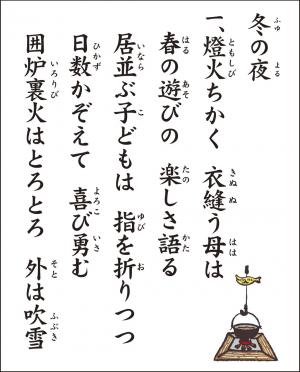 冬の夜
一、燈火ちかく 衣縫う母は
春の遊びの 楽しさ語る
居並ぶ子どもは 指を折りつつ
日数かぞえて 喜び勇む
囲炉裏火はとろとろ 外は吹雪